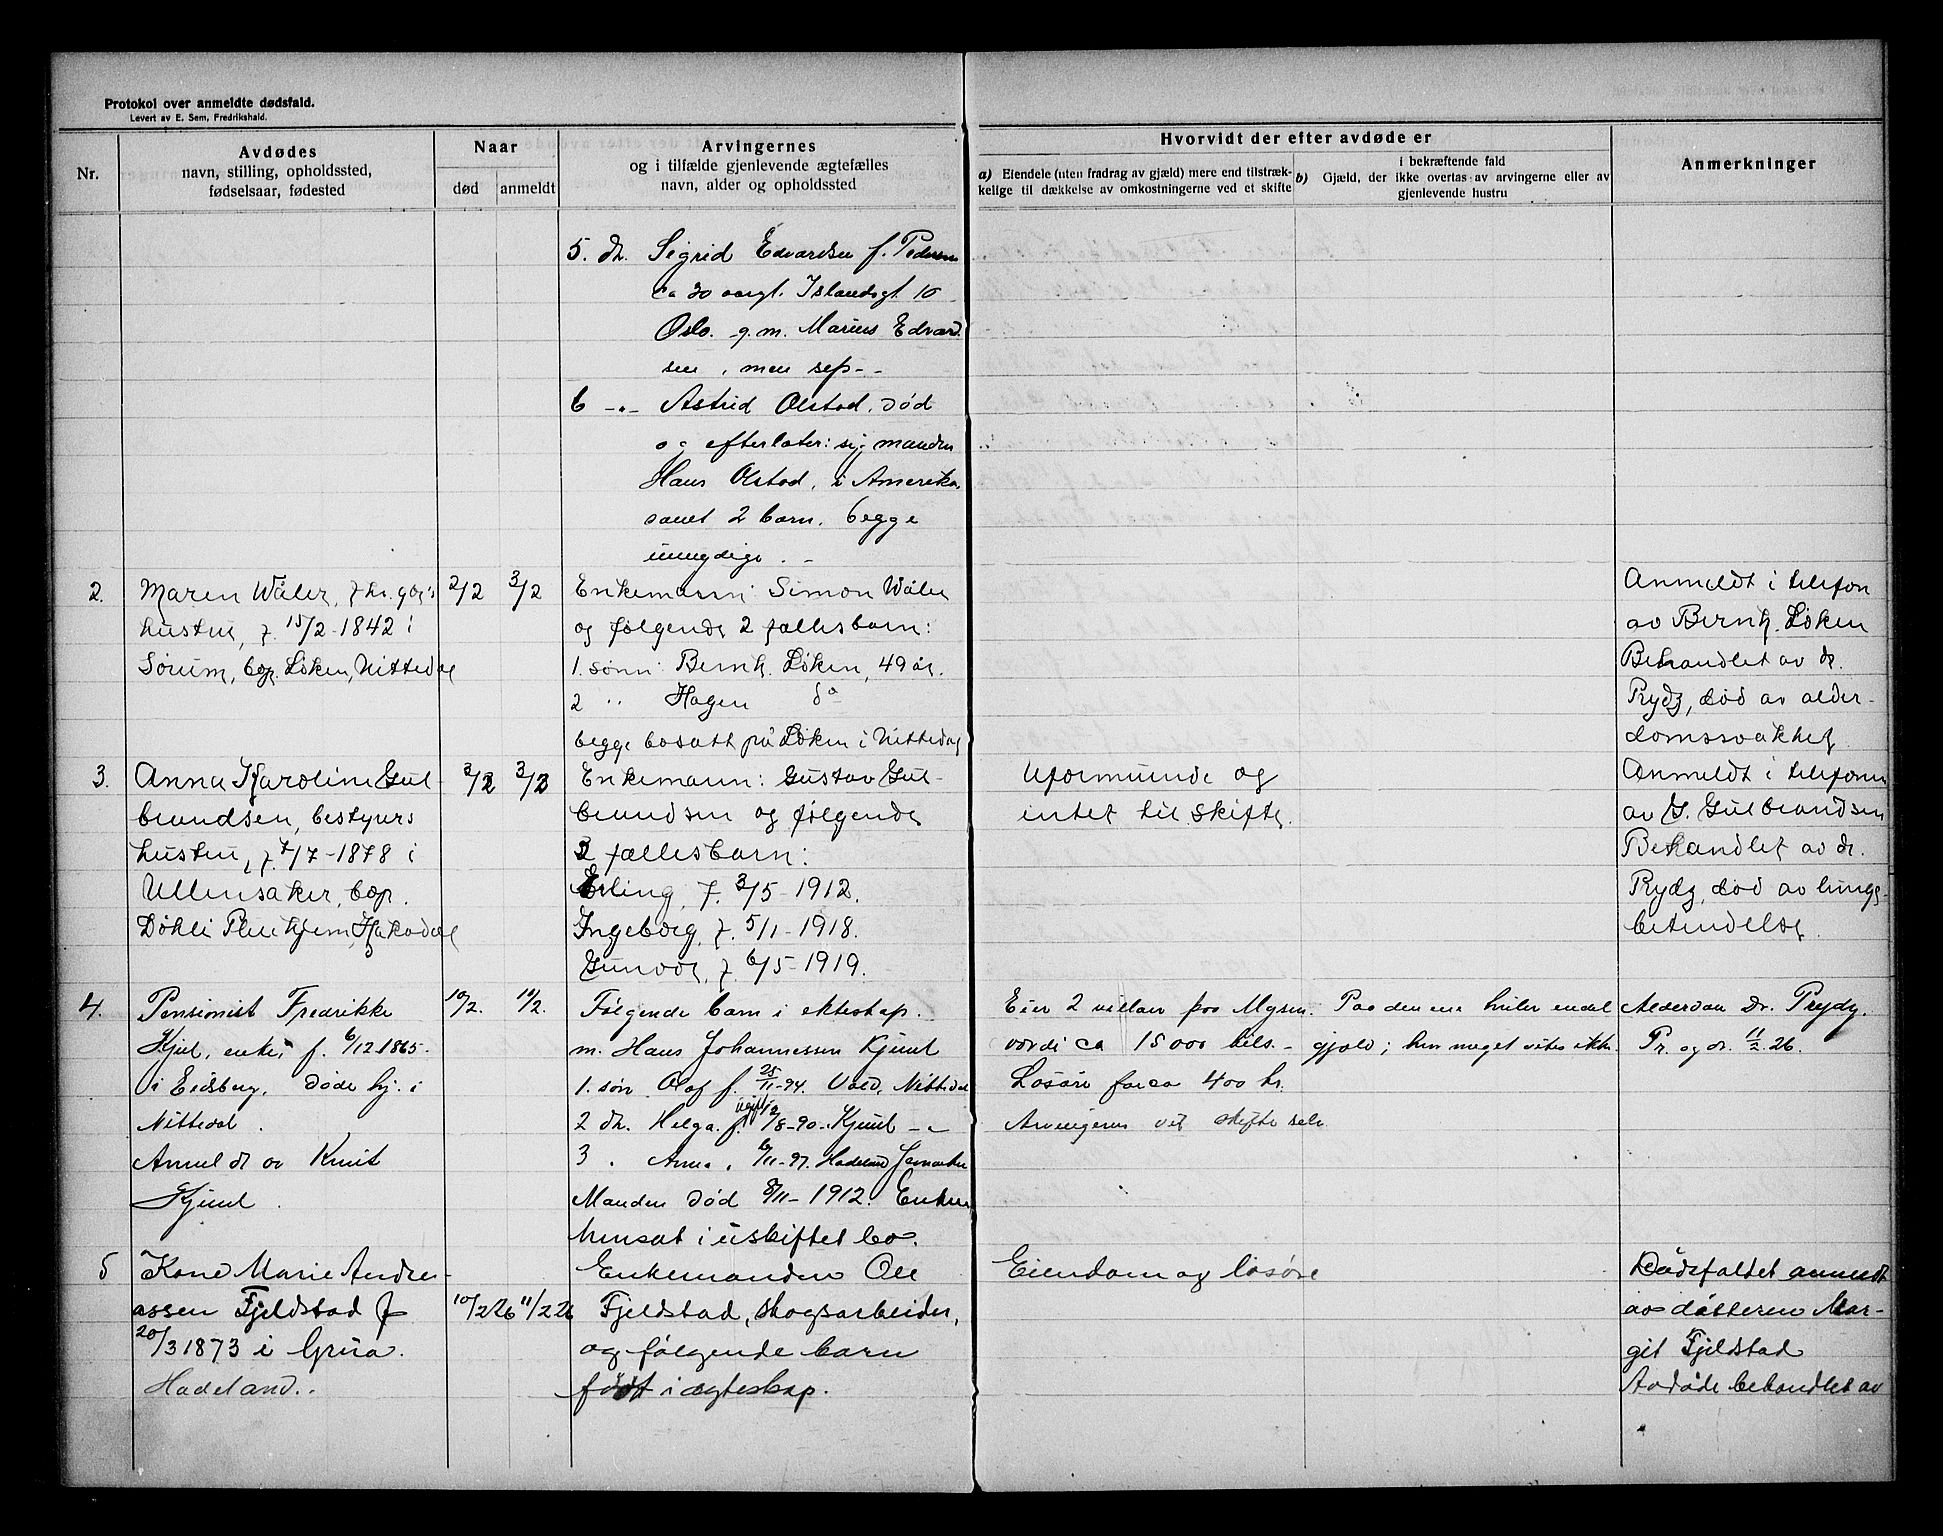 Protokol over anmeldte dødsfald.
Levert av E. Sem, Fredrikshald.
Nr.
Avdødes
navn, stilling, opholdssted,
fødselsaar, fødested
Naar
død
anmeldt
Arvingernes
og i tilfælde gjenlevende ægtefælles
navn, alder og opholdssted
Hvorvidt der efter avdøde er
a) Eiendele (uten fradrag av gjæld) mere end tilstræk-
kelige til dækkelse av omkostningerne ved et skifte
b)
i bekræftende fald
Gjæld, der ikke overtas av arvingerne eller av
gjenlevende hustru
Anmerkninger
5. dt. Sigrid Edvardsen f. Pedersen
ca 30 aargl. Islandsgt 10
Oslo. g.m. Marius Edvard
sen, men sep--
6 -"- Astrid Olstad, død
og efterlater: sig manden
Hans Olstad, i Amerika
samt 2 barn. begge
umyndige. -
2.
Maren Wåler,
hustru, f. 15/2-1842 i
Sørum, bop. Løken, Nittedal
2/2
3/2
Enkemann: Simon Wåler
og følgende 2 fællesbarn:
1. sønn: Bernh. Løken, 49 år.
2 " Hagen do
begge bosatt på Løken i Nittedal
Anmeldt i telefon
av Bernh. Løken
Behandlet av dr.
Prydz, død av alder-
domssvakhet
3.
Anna Karoline Gul-
brandsen, bestyrers
hustru, f. 7/7-1878 i
Ullensaker, bop.
Døkli Pleiehjem, Hakadal
2/2
3/2
Enkemann: Gustav Gul-
brandsen og følgende
3 fællesbarn:
Erling, f. 3/5-1912.
Ingeborg, f. 5/1-1918.
Gunvor, f. 6/5-1919.
Uformuende og
intet til skifte.
Anmeldt i telefonen
av G. Gulbrandsen
Behandlet av dr.
Prydz, død av lunge-
betendelse.
4.
Pensionist Fredrikke
Kjul, enke, f. 6/12 1865.
i Eidsberg. Døde hj. i
Nittedal.
Anmeldt av Knut
Kjul.
10/2.
11/2.
Følgende barn i ekteskap.
m. Hans Johannessen Kjuul
1. søn Olaf f. 25/11-94. Nittedal
2 dt. Helga. f. ugift 12/8-90. Kjuul -"-
3 " Anna. 6/11-97. Hadeland
Manden død 8/11-1912. Enken
hensat i uskiftet bo.
Eier 2 villaer paa Mysen.
værdi ca 15000 tils. -
Løsøre for ca 400 kr.
Arvingerne vil skifte selv
Paa den ene hviler endel
gjæld; hvor meget vites ikke.
Alderdom Dr. Prydz.
Pr. og dr. 11/2.26.
5
Kone Marie Andre-
assen Fjeldstad f
20/3 1873 i Grua.
Hadeland..
10/2 26
11/2 26
Enkemanden Ole
Fjeldstad, skogsarbeider,
og følgende barn
født i ægteskap.
Eiendom og løsøre
Dødsfaldet anmeldt
av datteren Mar-
git Fjeldstad
Avdøde behandlet av